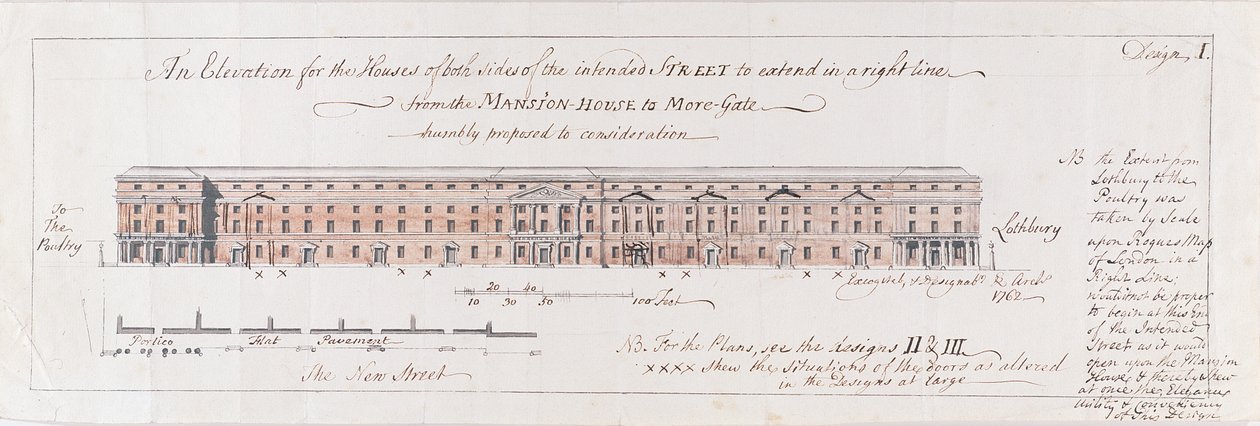 Design I.
An Elevation for the Houses of both sides of the intended STREET to extend in a right line
from the MANSION-HOUSE to More-Gate
humbly proposed to consideration
To
The
Poultry
Lothbury
NB the Extent from
Lothbury to the
Poultry was
taken by Scale
upon Roques Map
of London in a
Right Line;
would not be proper
to begin at this End
of the Intended
Street as it would
open upon the Mansion
House & thereby shew
at once the Elegance
Utility & Conveniency
of this Design
x x x x x x x x
Excogitat, & Designabt. & Archt.
1762
20 40
10 30 50 100 Feet
Portico Flat Pavement
The New Street
NB. For the Plans, see the Designs II & III
xxxx shew the situations of the doors as altered
in the Designs at large